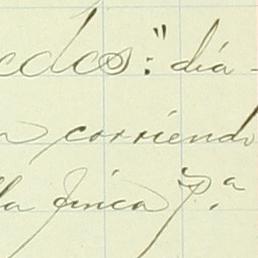 edos: " diá-
corriendo
lla finca pª.